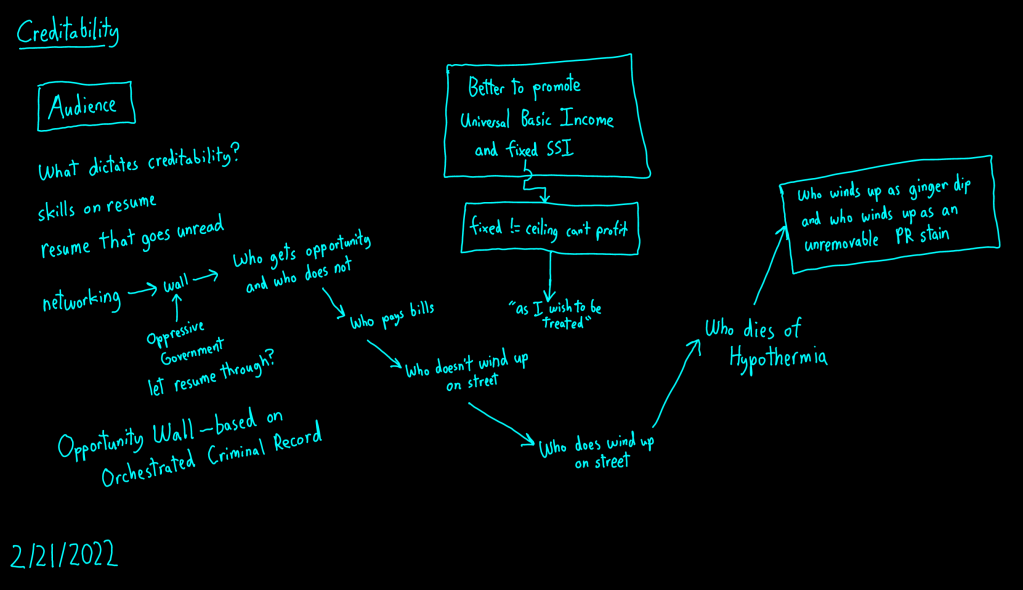 Creditability
Audience
What dictates creditability?
skills on resume
resume that goes unread
networking
wall
Oppressive
Government
let resume through?
Opportunity Wall - based on
Orchestrated Criminal Record
Who gets opportunity
and who does not
Who pays bills
Who doesn't wind up
on street
Who does wind up
on street
Who dies of
Hypothermia
Who winds up as ginger dip
and who winds up as an
unremovable PR stain
Better to promote
Universal Basic Income
and fixed SSI
fixed != ceiling can't profit
"as I wish to be
treated"
2/21/2022